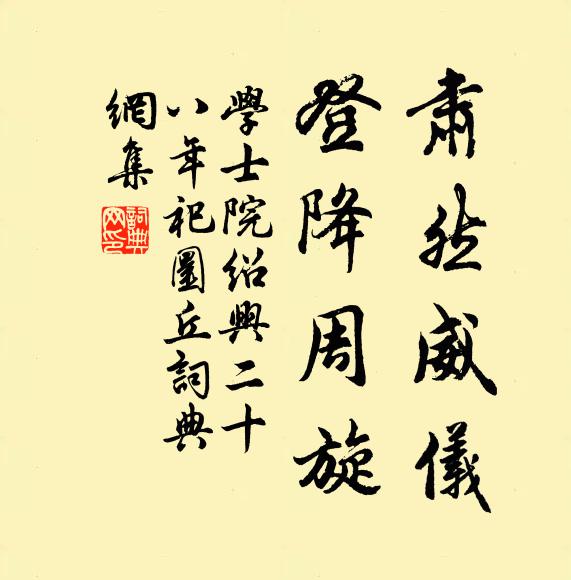 肅然威儀
登降周旋
學士院紹興二十
八年祀圜丘詞典
網集
詞典網印